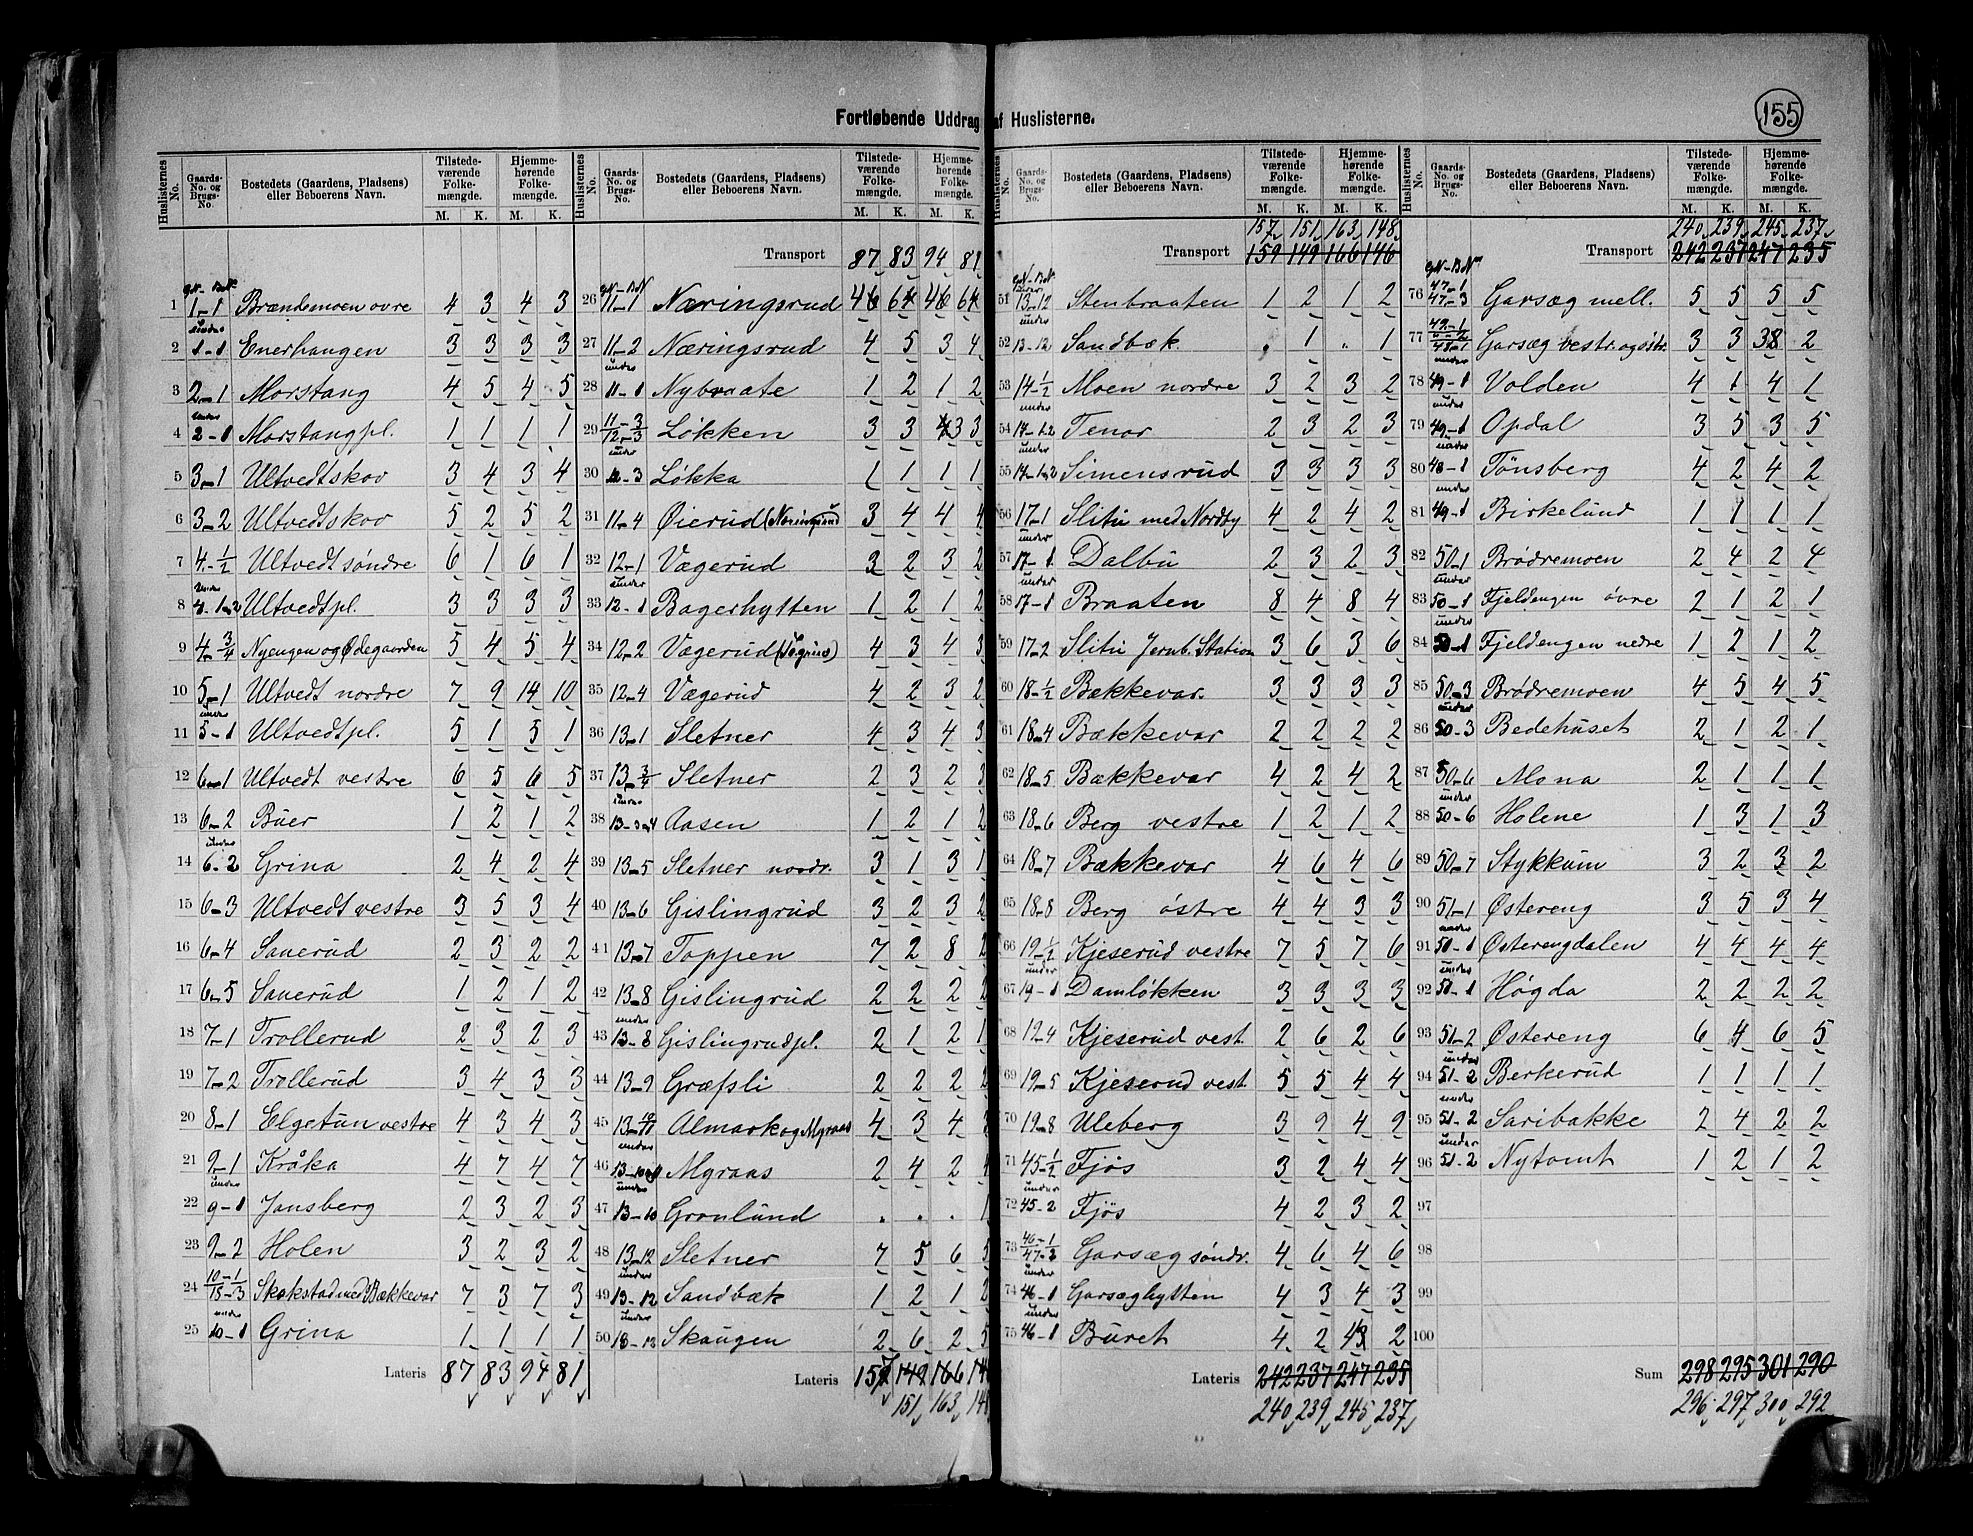 155
Fortløbende Uddrag af Huslisterne.
Huslisternes No. | Gaards-No. og Brugs-No. | Bostedets (Gaardens, Pladsens) eller Beboerens Navn. | Tilstedeværende Folkemængde. M. K. | Hjemmehørende Folkemængde. M. K.
gN-BN
1 | 1-1 | Brændemoen øvre | 4 | 3 | 4 | 3
2 | under 1-1 | Enerhaugen | 3 | 3 | 3 | 3
3 | 2-1 | Morstang | 4 | 5 | 4 | 5
4 | under 2-1 | Morstangpl. | 1 | 1 | 1 | 1
5 | 3-1 | Ultvedtskov | 3 | 4 | 3 | 4
6 | 3-2 | Ultvedtskov | 5 | 2 | 5 | 2
7 | 4-1/2 | Ultvedt søndre | 6 | 1 | 6 | 1
8 | under 4-1-2 | Ultvedtpl. | 3 | 3 | 3 | 3
9 | 4-3/4 | Nyengen og Ødegaarden | 5 | 4 | 5 | 4
10 | 5-1 | Ultvedt nordre | 7 | 9 | 14 | 10
11 | under 5-1 | Ultvedtpl. | 5 | 1 | 5 | 1
12 | 6-1 | Ultvedt vestre | 6 | 5 | 6 | 5
13 | 6-2 | Buer | 1 | 2 | 1 | 2
14 | under 6-2 | Grina | 2 | 4 | 2 | 4
15 | 6-3 | Ultvedt vestre | 3 | 5 | 3 | 4
16 | 6-4 | Sauerud | 2 | 3 | 2 | 2
17 | 6-5 | Sauerud | 1 | 2 | 1 | 2
18 | 7-1 | Trollerud | 2 | 3 | 2 | 3
19 | 7-2 | Trollerud | 3 | 4 | 3 | 3
20 | 8-1 | Elgetun vestre | 4 | 3 | 4 | 3
21 | 9-1 | Kråka | 4 | 7 | 4 | 7
22 | under 9-1 | Jansberg | 2 | 3 | 2 | 3
23 | 9-2 | Holen | 3 | 2 | 3 | 2
24 | 10-1/15-3 | Skakstad med Bækkevar | 7 | 3 | 7 | 3
25 | under 10-1 | Grina | 1 | 1 | 1 | 1
Lateris | 87 | 83 | 94 | 81
Huslisternes No. | Gaards-No. og Brugs-No. | Bostedets (Gaardens, Pladsens) eller Beboerens Navn. | Tilstedeværende Folkemængde. M. K. | Hjemmehørende Folkemængde. M. K.
Transport | 87 | 83 | 94 | 81
gN-BN
26 | 11-1 | Næringsrud
27 | 11-2 | Næringsrud | 4 | 5 | 3 | 4
28 | under 11-1 | Nybraate | 1 | 2 | 1 | 2
29 | 11-3/12-3 | Løkken | 3 | 3 | 3 | 3
30 | under 11-3 | Løkka | 1 | 1 | 1 | 1
31 | 11-4 | Øierud (Næringsrud | 3 | 4 | 4 | 4
32 | 12-1 | Vægerud | 3 | 2 | 3 | 2
33 | under 12-1 | Bagerhytten | 1 | 2 | 1 | 2
34 | 12-2 | Vægerud | 4 | 3 | 4 | 3
35 | 12-4 | Vægerud | 4 | 2 | 3 | 2
36 | 13-1 | Sletner | 4 | 3 | 4 | 3
37 | 13-3/4 | Sletner | 2 | 3 | 2 | 3
38 | under 13-3-4 | Aasen | 1 | 2 | 1 | 2
39 | 13-5 | Sletner nordr. | 3 | 1 | 3 | 1
40 | 13-6 | Gislingrud | 3 | 2 | 3 | 2
41 | 13-7 | Toppen | 7 | 2 | 8 | 2
42 | 13-8 | Gislingrud | 2 | 2 | 2 | 2
43 | under 13-8 | Gislingrudpl. | 2 | 1 | 2 | 1
44 | 13-9 | Græfsli | 2 | 2 | 2 | 2
45 | 13-10/11 | Almark og Mgraas | 4 | 3 | 4
46 | under | Mgraas | 2 | 4 | 2
47 | under 13-10 | Gronlund | . | . | . | 1
48 | 13-12 | Sletner | 7 | 5 | 6 | 5
49 | under 13-12 | Sandbæk | 1 | 2 | 1 | 2
50 | under 13-12 | Skaugen | 2 | 6 | 2 | 5
Lateris | 157 | 149 | 166
151 | 163
Huslisternes No. | Gaards-No. og Brugs-No. | Bostedets (Gaardens, Pladsens) eller Beboerens Navn. | Tilstedeværende Folkemængde. M. K. | Hjemmehørende Folkemængde. M. K.
157 | 151 | 163 | 148
Transport | 159 | 149 | 166 | 146
gN-BN
51 | under 13-12 | Stenbraaten | 1 | 2 | 1 | 2
52 | under 13-12 | Sandbæk | . | 1 | . | 1
53 | 14-1/2 | Moen nordre | 3 | 2 | 3 | 2
54 | under 14-1.2 | Tenor | 2 | 3 | 2 | 3
55 | under 14-1.2 | Simensrud | 3 | 3 | 3 | 3
56 | 17-1 | Slitu med Nordby | 4 | 2 | 4 | 2
57 | under 17-1 | Dalbu | 2 | 3 | 2 | 3
58 | under 17-1 | Braaten | 8 | 4 | 8 | 4
59 | 17-2 | Slitu Jernb. Station | 3 | 6 | 3 | 6
60 | 18-1/2 | Bækkevar. | 3 | 3 | 3 | 3
61 | 18-4 | Bækkevar | 2 | 2 | 2 | 2
62 | 18-5 | Bækkevar | 4 | 2 | 4 | 2
63 | 18-6 | Berg vestre | 1 | 2 | 1 | 2
64 | 18-7 | Bækkevar | 4 | 6 | 4 | 6
65 | 18-8 | Berg østre | 4 | 4 | 3 | 3
66 | 19-1/2 | Kjeserud vestre | 7 | 5 | 7 | 6
67 | under 19-1 | Damløkken | 3 | 3 | 3 | 3
68 | 19-4 | Kjeserud vest. | 2 | 6 | 2 | 6
69 | 19-5 | Kjeserud vest | 5 | 5 | 4 | 4
70 | 19-8 | Uleberg | 3 | 9 | 4 | 9
71 | 45-1/2 | Fjøs | 3 | 2 | 4 | 4
72 | under 45-2 | Fjøs | 4 | 2 | 3 | 2
73 | 46-1/47-2 | Garsæg søndr. | 4 | 6 | 4 | 6
74 | under 46-1 | Garsæghytten | 4 | 3 | 4 | 3
75 | under 46-1 | Buret | 4 | 2 | 3 | 2
Lateris | 242 | 237 | 247 | 235
240 | 239 | 245 | 237
Huslisternes No. | Gaards-No. og Brugs-No. | Bostedets (Gaardens, Pladsens) eller Beboerens Navn. | Tilstedeværende Folkemængde. M. K. | Hjemmehørende Folkemængde. M. K.
240 | 239 | 245 | 237
Transport | 242 | 237 | 247 | 235
gN-BN
76 | 47-1 47-3 | Garsæg mell. | 5 | 5 | 5 | 5
77 | Garsæg vestr. og østr. | 3 | 3 | 38 | 2
78 | under 49-1 | Volden | 4 | 1 | 4 | 1
79 | under 49-1 | Opdal | 3 | 5 | 3 | 5
80 | under 48-1 | Tønsberg | 4 | 2 | 4 | 2
81 | under 49-1 | Birkelund | 1 | 1 | 1 | 1
82 | 50-1 | Brødremoen | 2 | 4 | 2 | 4
83 | under 50-1 | Fjeldengen øvre | 2 | 1 | 2 | 1
84 | under 50-1 | Fjeldengen nedre | 1 | 2 | 1 | 2
85 | 50-3 | Brødremoen | 4 | 5 | 4 | 5
86 | under 50-3 | Bedehuset | 2 | 1 | 2 | 1
87 | 50-6 | Mona | 2 | 1 | 1 | 1
88 | under 50-6 | Holene | 1 | 3 | 1 | 3
89 | 50-7 | Stykkum | 3 | 2 | 3 | 2
90 | 51-1 | Østereng | 3 | 5 | 3 | 4
91 | under 50-1 | Østerengdalen | 4 | 4 | 4 | 4
92 | under 51-1 | Høgda | 2 | 2 | 2 | 2
93 | 51-2 | Østereng | 6 | 4 | 6 | 5
94 | under 51-2 | Berkerud | 1 | 1 | 1 | 1
95 | under 51-2 | Saribakke | 2 | 4 | 2 | 2
96 | under 51-2 | Nytomt | 1 | 2 | 1 | 2
97
98
99
100
Sum | 298 | 295 | 301 | 290
296 | 297 | 300 | 292